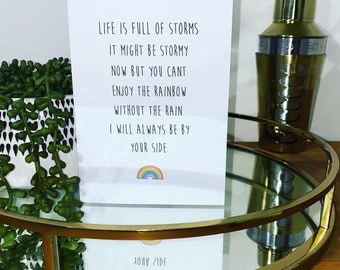 LIFE IS FULL OF STORMS
IT MIGHT BE STORMY
NOW BUT YOU CANT
ENJOY THE RAINBOW
WITHOUT THE RAIN.
I WILL ALWAYS BE BY
YOUR SIDE.
YOUR SIDE